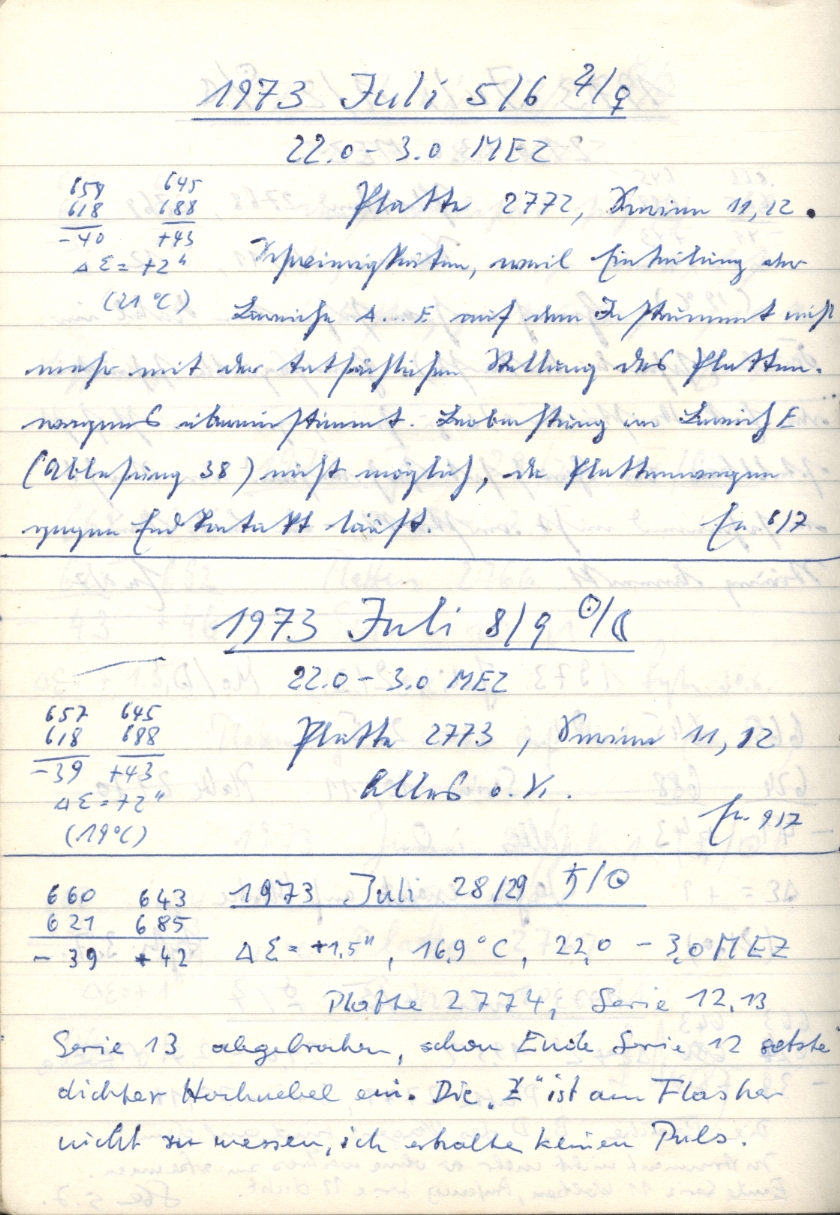 1973 Juli 5/6 ♃/♀
22.0 – 3.0 MEZ
659 645
618 688
-40 +43
Δε = +2"
(21°C)
Platte 2772, Serien 11, 12.
Schwierigkeiten, weil Einteilung der
Bereiche A...E auf dem Instrument nicht
mehr mit der tatsächlichen Stellung des Platten-
wagens übereinstimmt. Beobachtung im Bereich E
(Ablesung 38) nicht möglich, da Plattenwagen
gegen Endkontakt läuft. 6/7
1973 Juli 8/9 ☉/☾
22.0 – 3.0 MEZ
657 645
618 688
-39 +43
Δε = +2"
(19°C)
Platte 2773, Serien 11, 12
Alles o.K.
9/7
660 643
621 685
- 39 + 42
1973 Juli 28/29 ♄/☉
Δε = +1.5", 16,9°C, 22,0 – 3,0 MEZ
Platte 2774, Serie 12.13
Serie 13 abgebrochen, schon Ende Serie 12 setzte
dichter Hochnebel ein. Die „Z" ist am Flasher
nicht zu messen, ich erhalte keinen Puls.